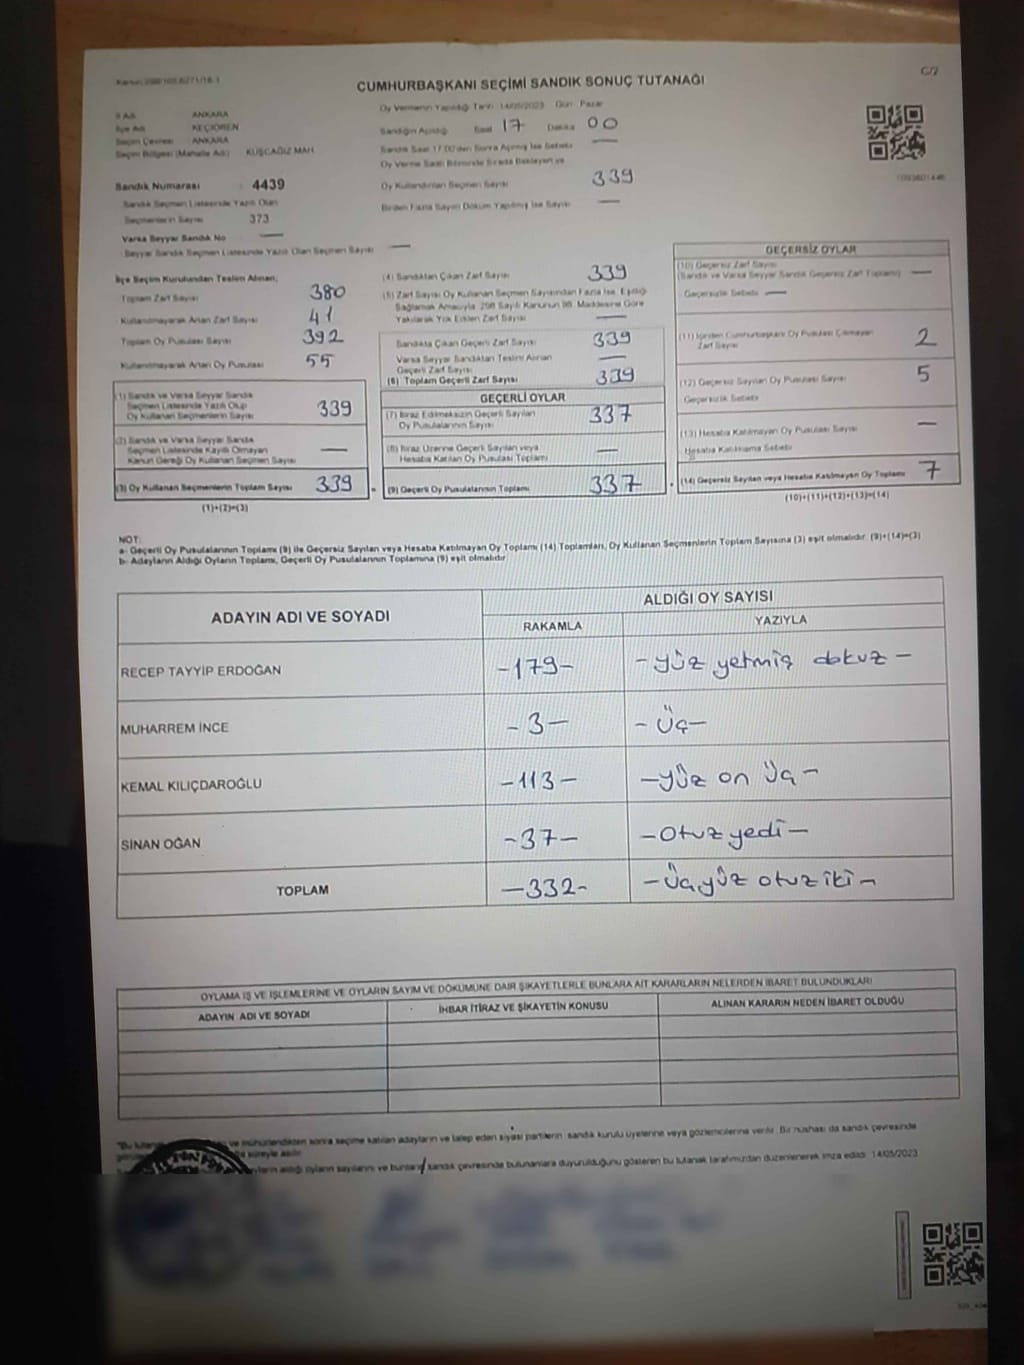 CUMHURBAŞKANI SEÇİMİ SANDIK SONUÇ TUTANAĞI
C/2
Oy Vermenin Yapıldığı Tarih 14/05/2023 Gün Pazar
İl Adı ANKARA
İlçe Adı KEÇİÖREN
Seçim Çevresi ANKARA
Seçim Bölgesi (Mahalle Adı) KUŞCAĞIZ MAH.
Sandığın Açıldığı Saat 17 Dakika 00
Sandık Saat 17:00'den Sonra Açılmış İse Sebebi —
Oy Verme Saati Bitiminde Sırada Bekleyen ve
Oy Kullandırılan Seçmen Sayısı 339
Birden Fazla Sayım Döküm Yapılmış İse Sayısı —
Sandık Numarası : 4439
Sandık Seçmen Listesinde Yazılı Olan
Seçmenlerin Sayısı 373
Varsa Seyyar Sandık No —
Seyyar Sandık Seçmen Listesinde Yazılı Olan Seçmen Sayısı —
İlçe Seçim Kurulundan Teslim Alınan;
Toplam Zarf Sayısı 380
Kullanılmayarak Artan Zarf Sayısı 41
Toplam Oy Pusulası Sayısı 392
Kullanılmayarak Artan Oy Pusulası 55
(1) Sandık ve Varsa Seyyar Sandık
Seçmen Listesinde Yazılı Olup
Oy Kullanan Seçmenlerin Sayısı 339
(2) Sandık ve Varsa Seyyar Sandık
Seçmen Listesinde Kayıtlı Olmayan
Kanun Gereği Oy Kullanan Seçmen Sayısı —
(3) Oy Kullanan Seçmenlerin Toplam Sayısı 339
(1)+(2)=(3)
(4) Sandıktan Çıkan Zarf Sayısı 339
(5) Zarf Sayısı Oy Kullanan Seçmen Sayısından Fazla İse, Eşitliği
Sağlamak Amacıyla, 298 Sayılı Kanunun 98. Maddesine Göre
Yakılarak Yok Edilen Zarf Sayısı —
Sandıkta Çıkan Geçerli Zarf Sayısı 339
Varsa Seyyar Sandıktan Teslim Alınan
Geçerli Zarf Sayısı —
(6) Toplam Geçerli Zarf Sayısı 339
GEÇERLİ OYLAR
(7) İtiraz Edilmeksizin Geçerli Sayılan
Oy Pusulalarının Sayısı 337
(8) İtiraz Üzerine Geçerli Sayılan veya
Hesaba Katılan Oy Pusulası Toplamı —
(9) Geçerli Oy Pusulalarının Toplamı 337
GEÇERSİZ OYLAR
(10) Geçersiz Zarf Sayısı
(Sandık ve Varsa Seyyar Sandık Geçersiz Zarf Toplamı) —
Geçersizlik Sebebi —
(11) İçinden Cumhurbaşkanı Oy Pusulası Çıkmayan
Zarf Sayısı 2
(12) Geçersiz Sayılan Oy Pusulası Sayısı 5
Geçersizlik Sebebi
(13) Hesaba Katılmayan Oy Pusulası Sayısı —
Hesaba Katılmama Sebebi
(14) Geçersiz Sayılan veya Hesaba Katılmayan Oy Toplamı 7
(10)+(11)+(12)+(13)=(14)
NOT:
a- Geçerli Oy Pusulalarının Toplamı (9) ile Geçersiz Sayılan veya Hesaba Katılmayan Oy Toplamı (14) Toplamları, Oy Kullanan Seçmenlerin Toplam Sayısına (3) eşit olmalıdır. (9)+(14)=(3)
b- Adayların Aldığı Oyların Toplamı, Geçerli Oy Pusulalarının Toplamına (9) eşit olmalıdır.
ADAYIN ADI VE SOYADI ALDIĞI OY SAYISI
RAKAMLA YAZIYLA
RECEP TAYYİP ERDOĞAN -179- -yüz yetmiş dokuz-
MUHARREM İNCE -3- -Üç-
KEMAL KILIÇDAROĞLU -113- -yüz on üç-
SİNAN OĞAN -37- -Otuz yedi-
TOPLAM -332- -Üçyüz otuz iki-
OYLAMA İŞ VE İŞLEMLERİNE VE OYLARIN SAYIM VE DÖKÜMÜNE DAİR ŞİKAYETLERLE BUNLARA AİT KARARLARIN NELERDEN İBARET BULUNDUKLARI
ADAYIN ADI VE SOYADI İHBAR İTİRAZ VE ŞİKAYETİN KONUSU ALINAN KARARIN NEDEN İBARET OLDUĞU
ve mühürlendikten sonra seçime katılan adayların ve talep eden siyasi partilerin sandık kurulu üyelerine veya gözlemcilerine verilir. Bir nüshası da sandık çevresinde
süreyle asılır.
aldığı oyların sayılarını ve bunların sandık çevresinde bulunanlara duyurulduğunu gösteren bu tutanak tarafımızdan düzenlenerek imza edildi. 14/05/2023